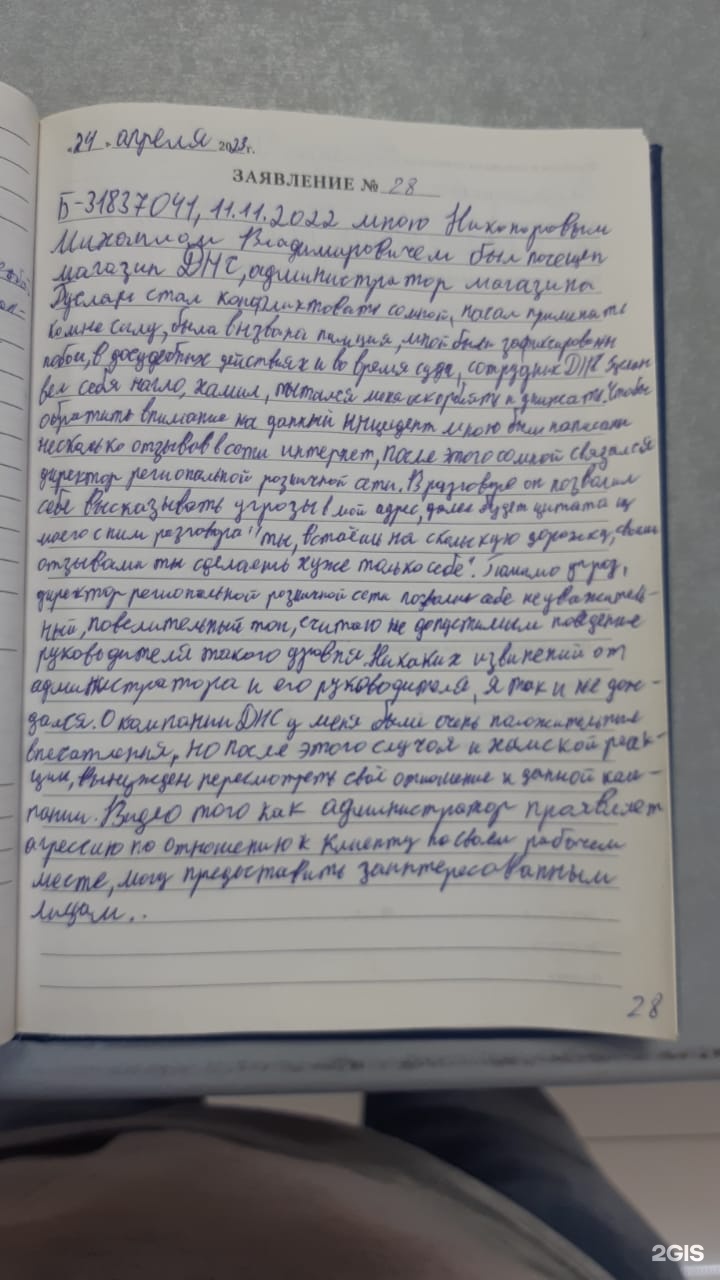 «24» апреля 2023г.
ЗАЯВЛЕНИЕ № 28
Б-31837041, 11.11.2022 мною Никоноровым
Михаилом Владимировичем был посещен
магазин ДНС, администратор магазина
Руслан стал конфликтовать со мной, начал применять
ко мне силу, была вызвана полиция, мной были зафиксированы
побои, в досудебных действиях и во время суда, сотрудник ДНС Руслан
вел себя нагло, хамил, пытался меня оскорбить и унижать. Чтобы
обратить внимание на данный инцидент мною были написаны
несколько отзывов в сети интернет, после этого со мной связался
директор региональной розничной сети. В разговоре он позволил
себе высказывать угрозы в мой адрес, далее будет цитата из
моего с ним разговора "ты, встаёшь на скользкую дорожку, своими
отзывами ты сделаешь хуже только себе". Помимо угроз,
директор региональной розничной сети позволил себе неуважитель-
ный, повелительный тон, считаю не допустимым поведение
руководителя такого уровня. Никаких извинений от
администратора и его руководителя, я так и не дож-
дался. О компании ДНС у меня были очень положительные
впечатления, но после этого случая и хамской реак-
ции, вынужден пересмотреть своё отношение к данной ком-
пании. Видео того как администратор проявляет
агрессию по отношению к клиенту на своем рабочем
месте, могу предоставить заинтересованным
лицам..
28
2GIS